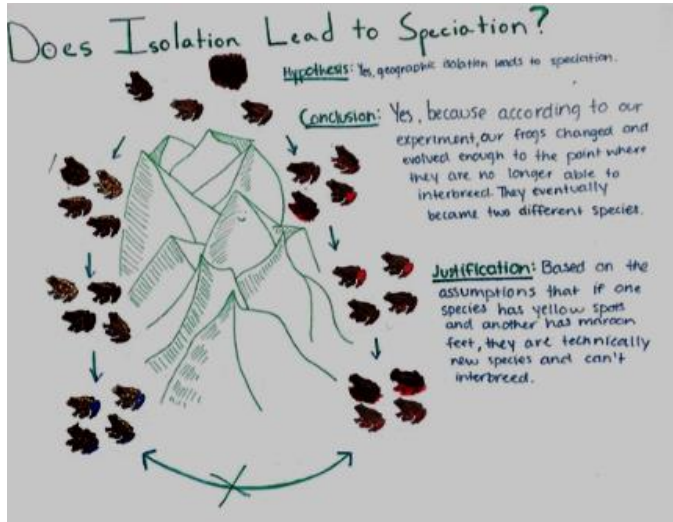 Does Isolation Lead to Speciation?
Hypothesis: Yes, geographic isolation leads to speciation.
Conclusion: Yes, because according to our
experiment, our frogs changed and
evolved enough to the point where
they are no longer able to
interbreed. They eventually
became two different species.
Justification: Based on the
assumptions that if one
species has yellow spots
and another has maroon
feet, they are technically
new species and can't
interbreed.